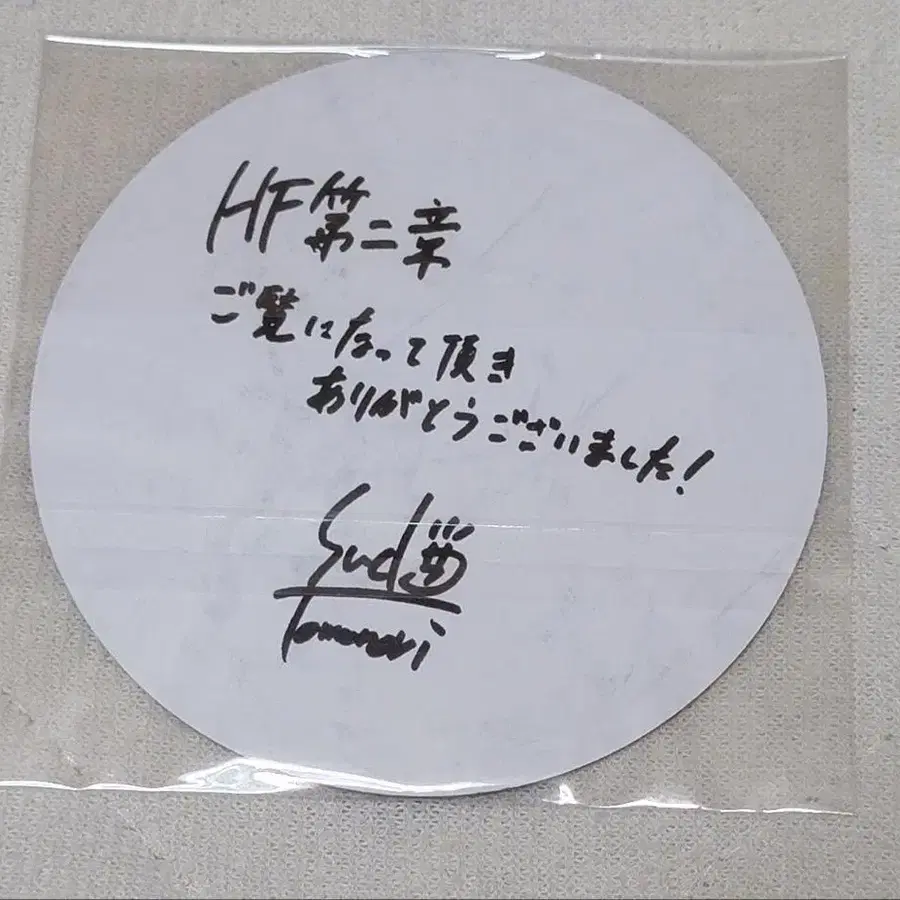 HF第二章
ご覧になって頂き
ありがとうございました!
Sudo
Tomonori